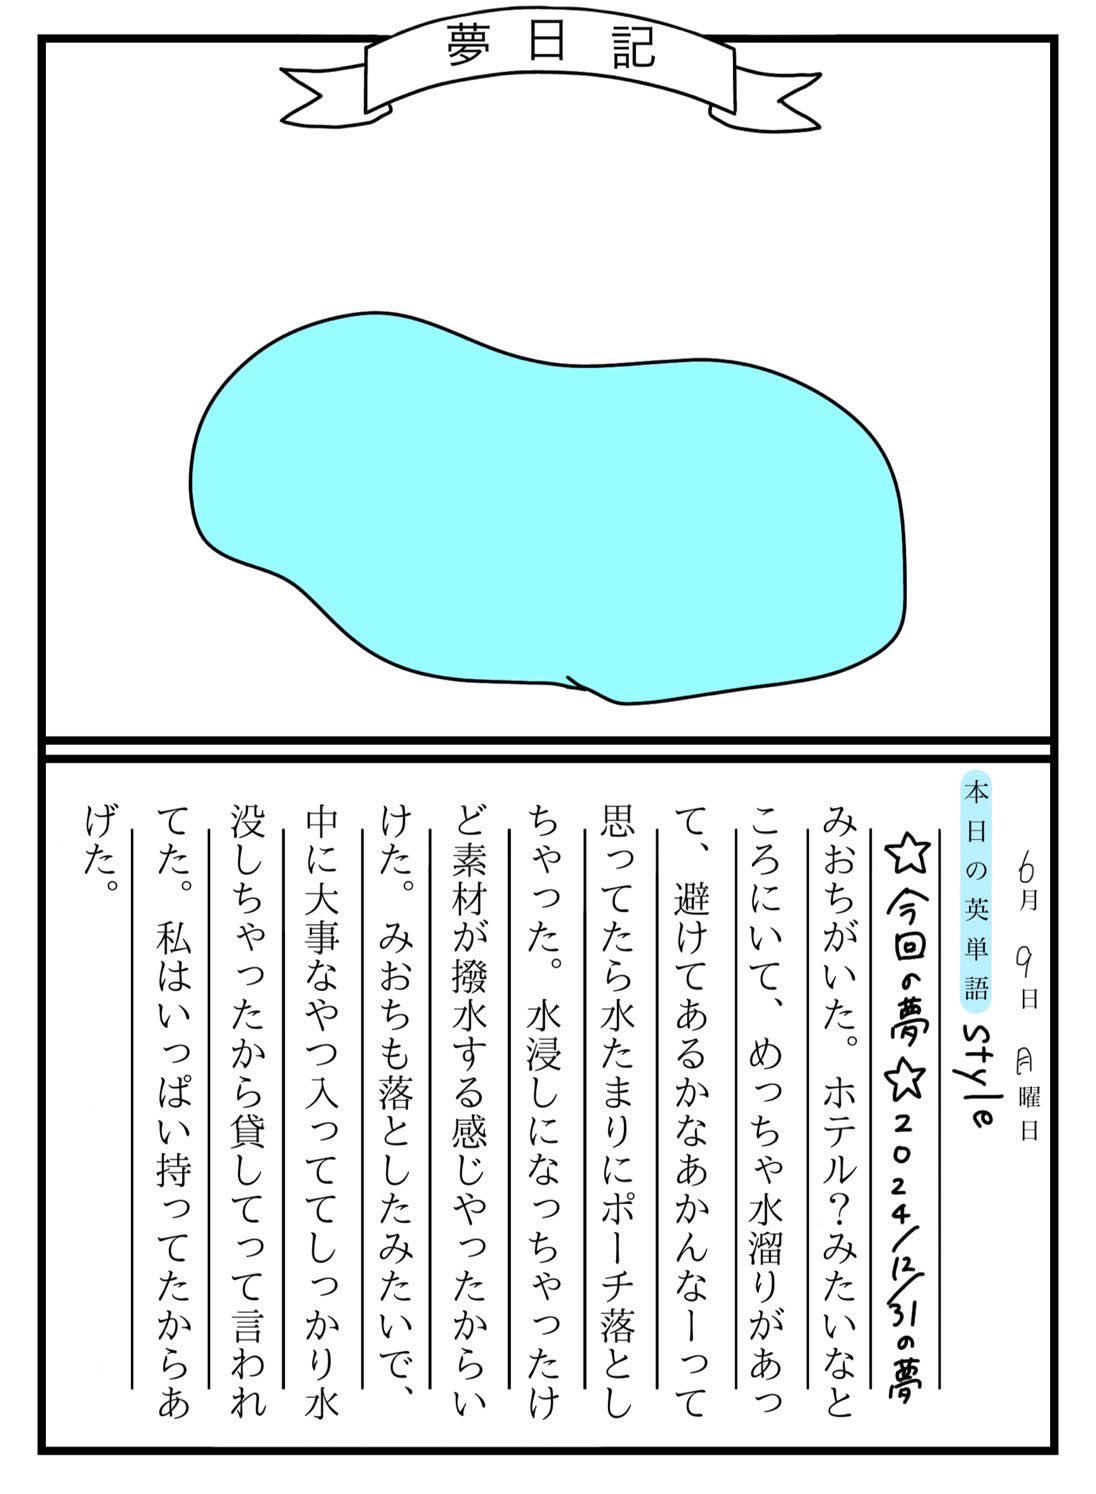 夢日記
6月9日月曜日
本日の英単語 style
☆今回の夢☆2024/12/31の夢
みおちがいた。ホテル？みたいなと
ころにいて、めっちゃ水溜りがあっ
て、避けてあるかなあかんなーって
思ってたら水たまりにポーチ落とし
ちゃった。水浸しになっちゃったけ
ど素材が撥水する感じやったからい
けた。みおちも落としたみたいで、
中に大事なやつ入っててしっかり水
没しちゃったから貸してって言われ
てた。私はいっぱい持ってたからあ
げた。